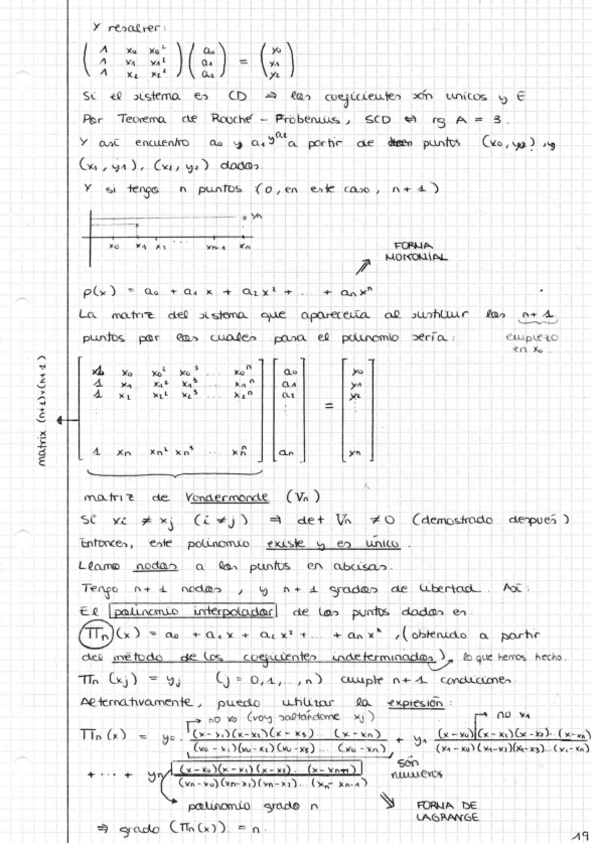 Y resolver:
( 1 x0 x0² ) ( a0 ) = ( y0 )
( 1 x1 x1² ) ( a1 ) ( y1 )
( 1 x2 x2² ) ( a2 ) ( y2 )
Si el sistema es CD ⇒ los coeficientes són unicos y ∃
Por Teorema de Rouché - Fröbenius, SCD ⇔ rg A = 3.
Y así encuentro a0 y a1 y a2 a partir de puntos (x0, y0), y
(x1, y1), (x2, y2) dados.
Y si tengo n puntos (o, en este caso, n+1)
yn
x0 x1 x2 ... xn-1 xn
FORMA
MONOMIAL
p(x) = a0 + a1 x + a2 x² + ... + an xⁿ
La matriz del sistema que aparecería al sustituir los n+1
puntos por los cuales pasa el polinomio sería:
empiezo
en x0
matrix (n+1)×(n+1)
1 x0 x0² x0³ ... x0ⁿ a0 y0
1 x1 x1² x1³ ... x1ⁿ a1 y1
1 x2 x2² x2³ ... x2ⁿ a2 = y2
1 xn xn² xn³ ... xnⁿ an yn
matriz de Vandermonde (Vn)
Si xi ≠ xj (i ≠ j) ⇒ det Vn ≠ 0 (demostrado después)
Entonces, este polinomio existe y es único.
Llamo nodos a los puntos en abcisas.
Tengo n+1 nodos, y n+1 grados de libertad. Así:
El polinomio interpolador de los puntos dados es:
Πn(x) = a0 + a1x + a2 x² + ... + an xⁿ, (obtenido a partir
del método de los coeficientes indeterminados) lo que hemos hecho.
Πn (xj) = yj (j = 0,1,...,n) cumple n+1 condiciones.
Alternativamente, puedo utilizar la expresión:
no x0 (voy saltándome xj) no x1
Πn (x) = y0 · (x-x1)(x-x2)(x-x3)...(x-xn) / (x0-x1)(x0-x2)(x0-x3)...(x0-xn) + y1 (x-x0)(x-x2)(x-x3)...(x-xn) / (x1-x0)(x1-x2)(x1-x3)...(x1-xn)
+ ... + yn (x-x0)(x-x1)(x-x2)...(x-xn-1) / (xn-x0)(xn-x1)(xn-x2)...(xn-xn-1)
són
numeros
polinomio grado n
FORMA DE
LAGRANGE
⇒ grado (Πn(x)) = n.
19